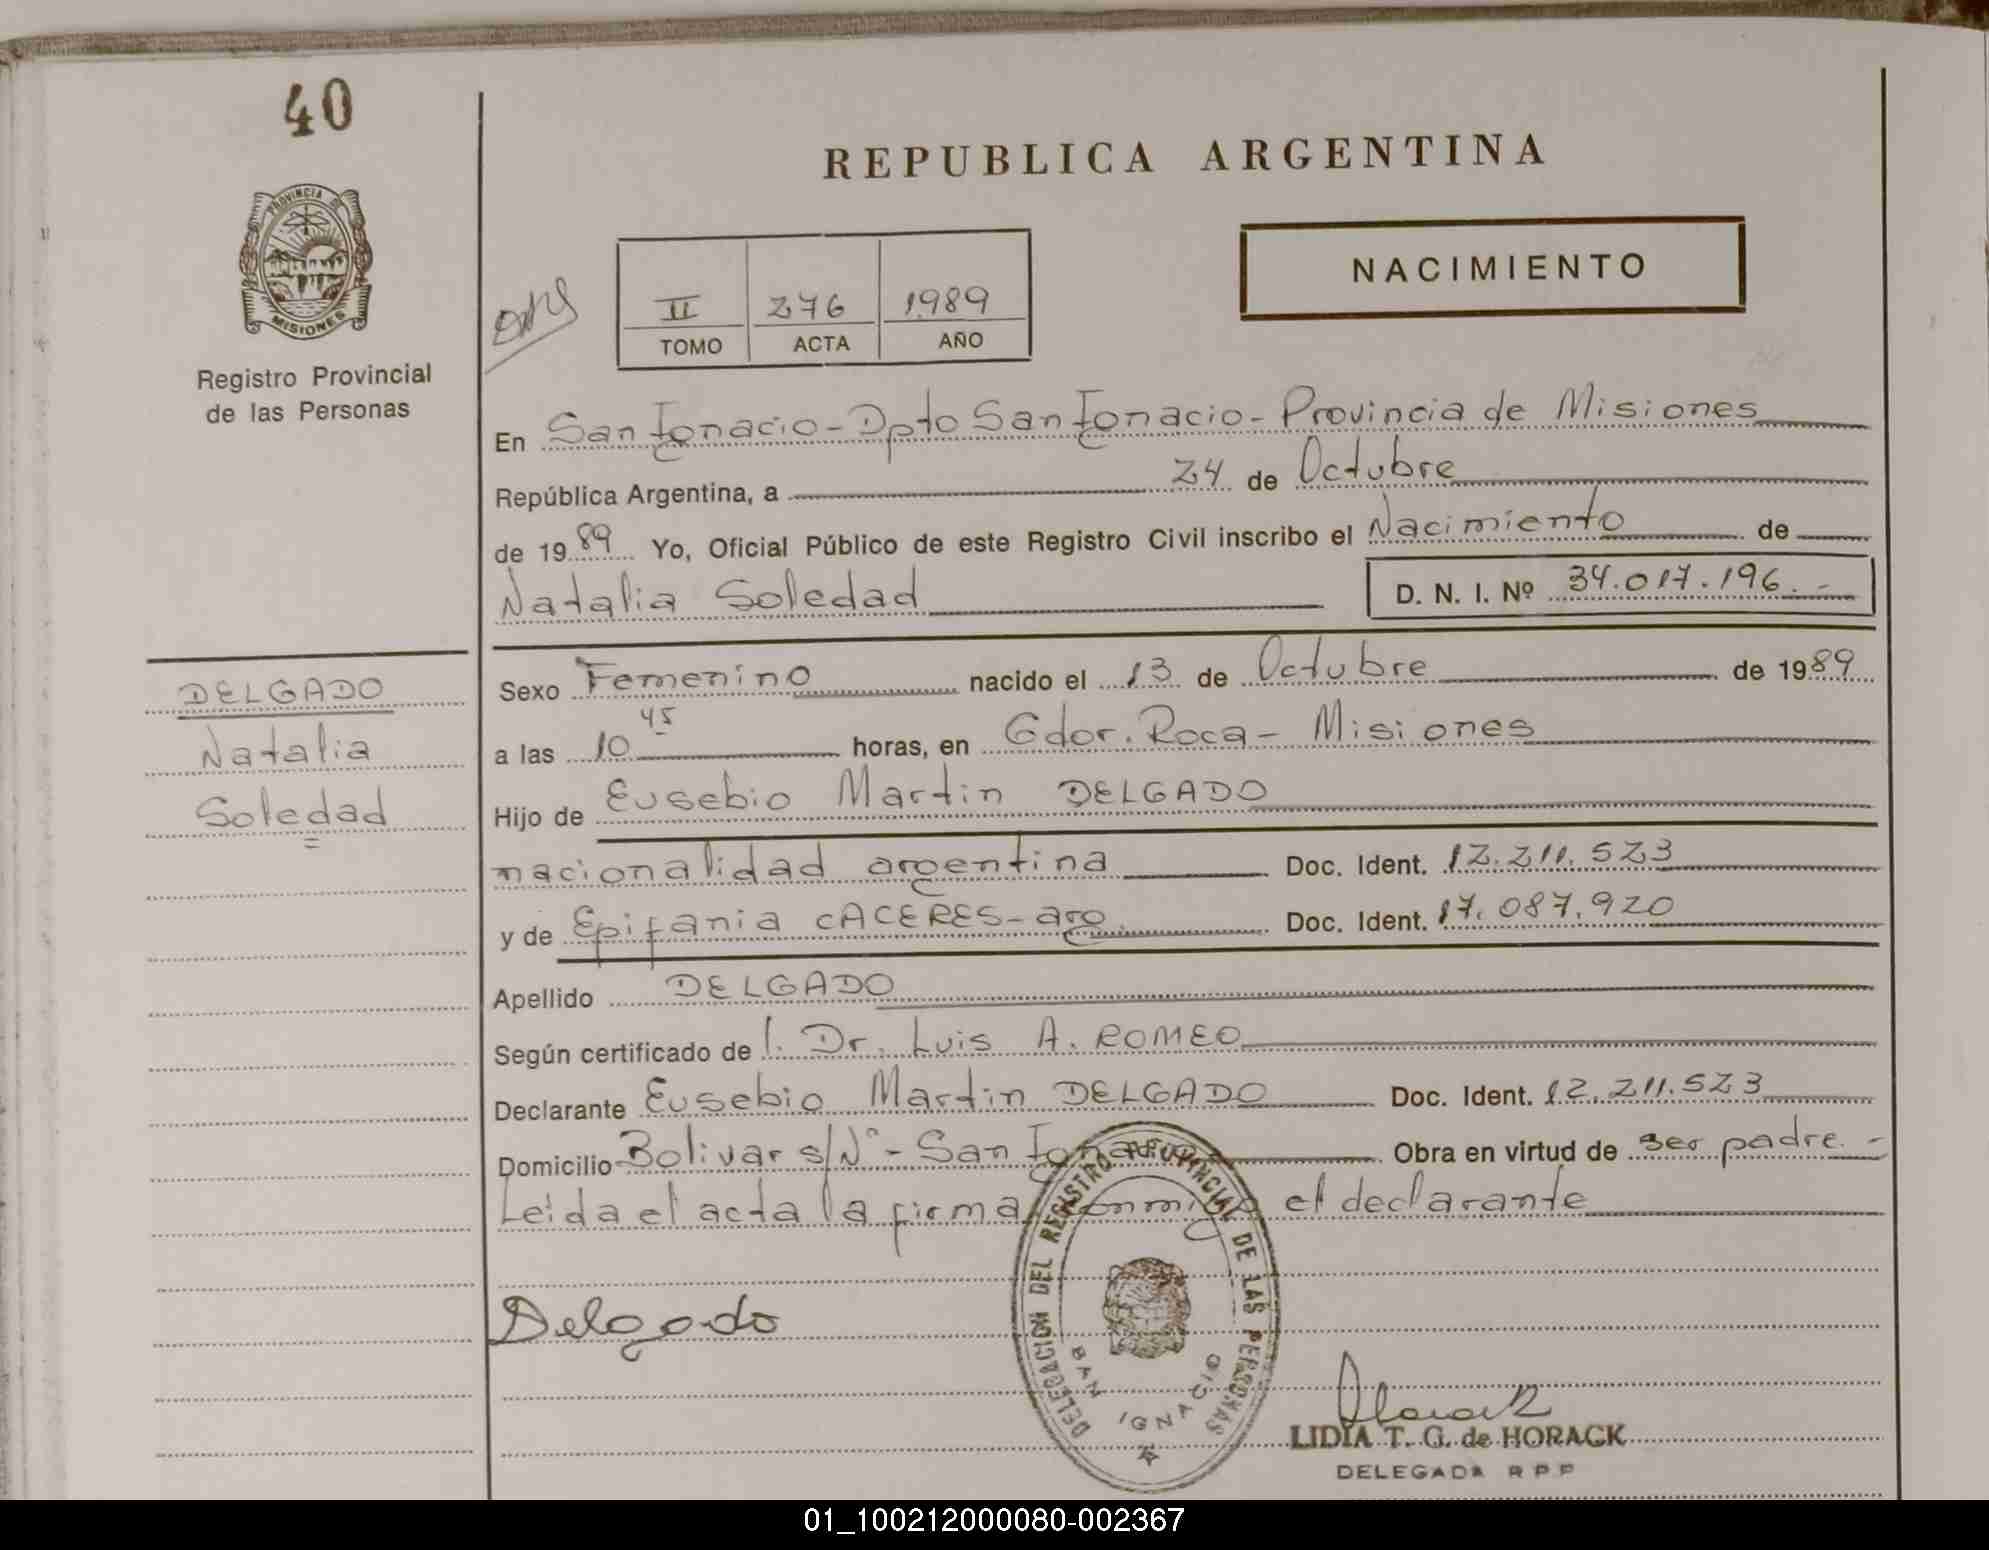 40
REPUBLICA ARGENTINA
PROVINCIA DE
MISIONES
NACIMIENTO
II 276 1989
TOMO ACTA AÑO
Registro Provincial
de las Personas
En San Ignacio - Dpto San Ignacio - Provincia de Misiones
República Argentina, a 24 de Octubre
de 1989 Yo, Oficial Público de este Registro Civil inscribo el Nacimiento de
Natalia Soledad D. N. I. Nº 34.017.196.-
Sexo Femenino nacido el 13 de Octubre de 1989
a las 10 45 horas, en Gdor. Roca - Misiones
Hijo de Eusebio Martin DELGADO
nacionalidad argentina Doc. Ident. 12.211.523
y de Epifania CACERES - arg. Doc. Ident. 17.087.920
Apellido DELGADO
Según certificado de l. Dr. Luis A. ROMEO
Declarante Eusebio Martin DELGADO Doc. Ident. 12.211.523
Domicilio Bolivar s/Nº - San Ignacio Obra en virtud de ser padre.-
Leida el acta la firma conmigo el declarante
DELGADO
Natalia
Soledad
Delgado
DELEGACION DEL REGISTRO PROVINCIAL DE LAS PERSONAS
SAN IGNACIO
LIDIA T. G. de HORACK
DELEGADA R P P
01_100212000080-002367